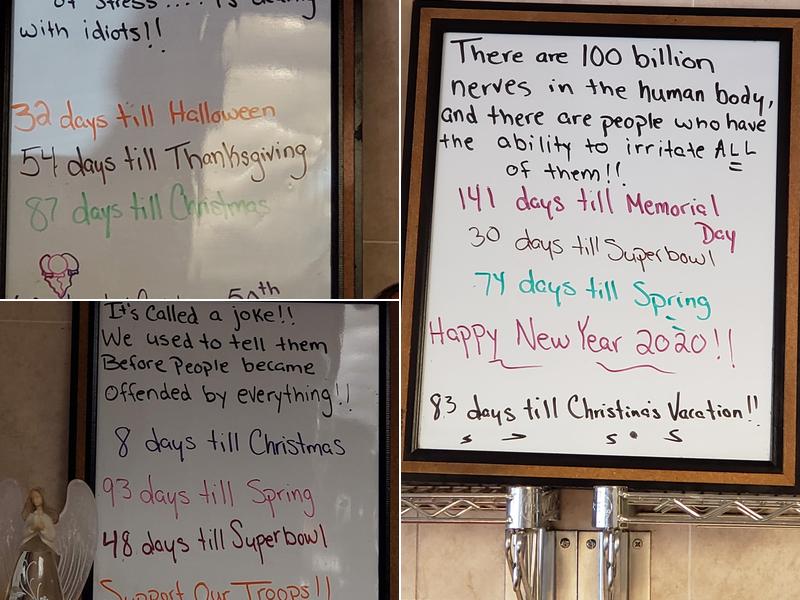 of stress.... is dealing
with idiots!!
32 days till Halloween
54 days till Thanksgiving
87 days till Christmas
50th
It's called a joke!!
We used to tell them
Before People became
Offended by everything!!
8 days till Christmas
93 days till Spring
48 days till Superbowl
Support Our Troops!!
There are 100 billion
nerves in the human body,
and there are people who have
the ability to irritate ALL
of them!!
141 days till Memorial
Day
30 days till Superbowl
74 days till Spring
Happy New Year 2020!!
83 days till Christina's Vacation!!